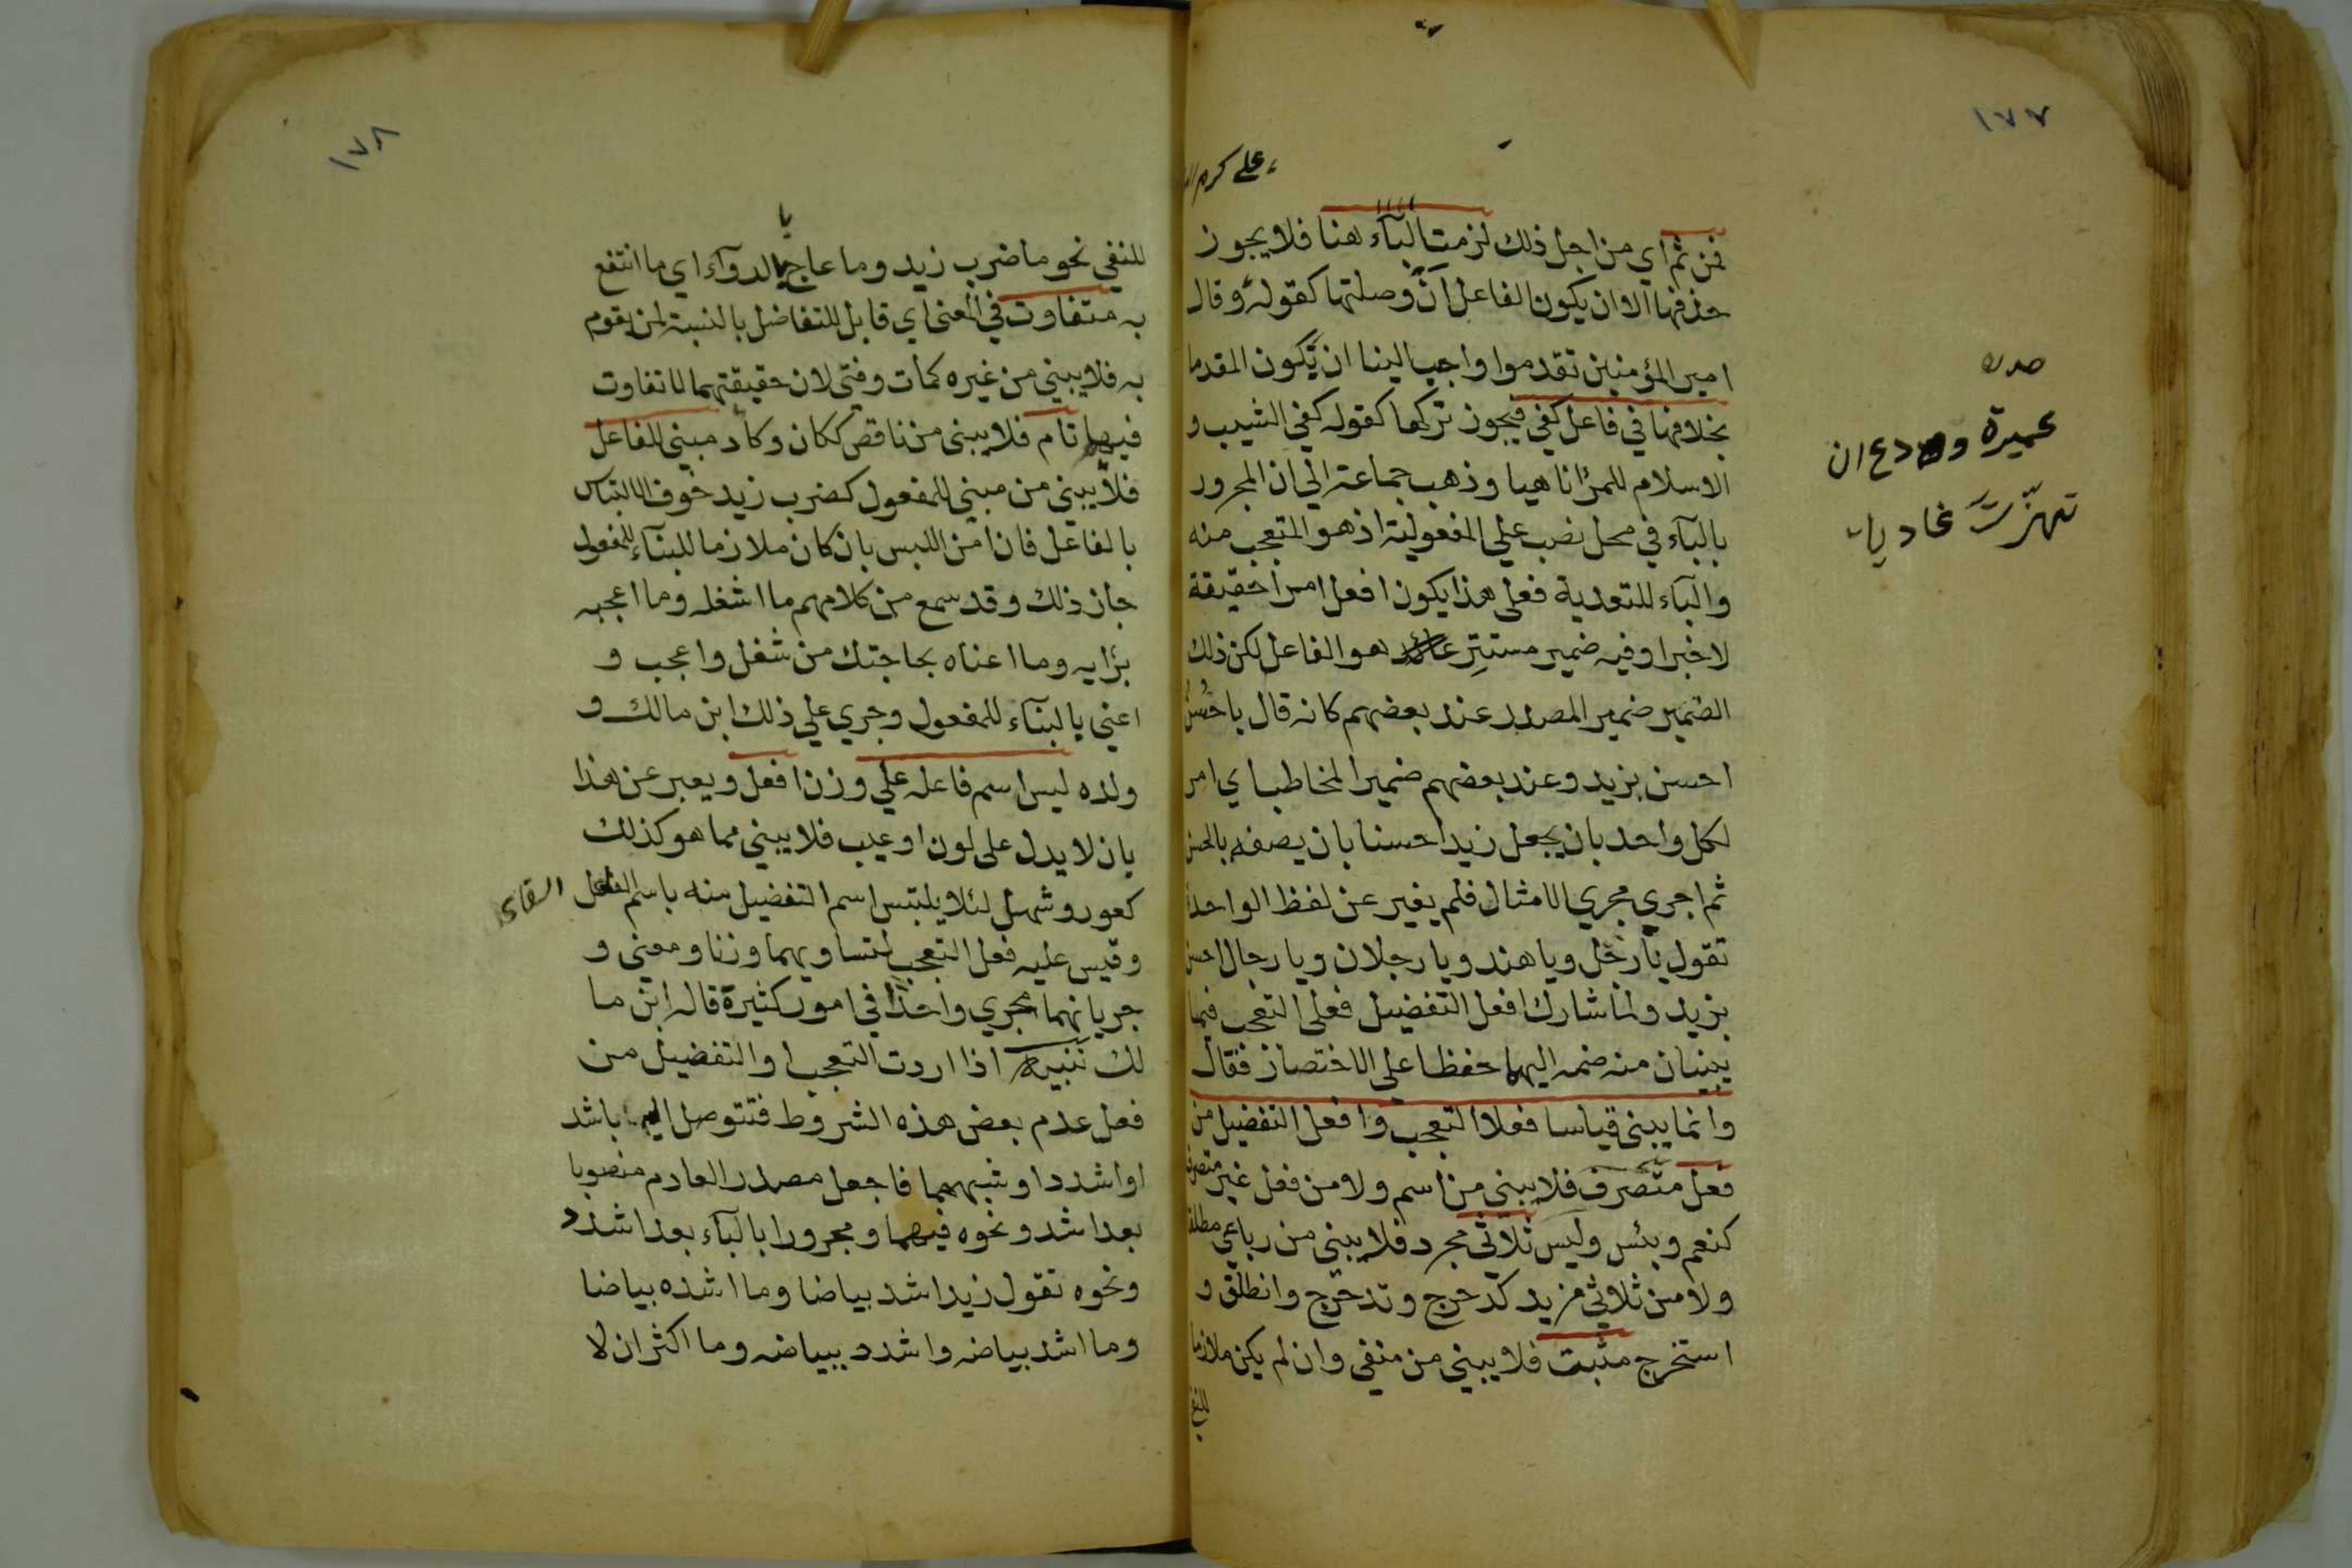 ١٧٧
على كرم
فمن ثم اي من اجل ذلك لزمت الباء هنا فلا يجوز
حذفها الا ان يكون الفاعل انّ وصلتها كقوله وقال
امير المؤمنين تقدموا واجب الينا ان تكون المقدما
بخلافها في فاعل كفي فيجوز تركها كقوله كفي الشيب و
الاسلام للمرء ناهيا وذهب جماعة الي ان المجرور
بالبآء في محل نصب علي المفعولية اذ هو المتعجب منه
والبآء للتعدية فعلى هذا يكون افعل امرا حقيقة
لا خبرا وفيه ضمير مستتر هو الفاعل لكن ذلك
الضمير ضمير المصدر عند بعضهم كانه قال يا حسن
احسن بزيد وعند بعضهم ضمير المخاطب اي امر
لكل واحد بان يجعل زيدا حسنا بان يصفه بالحسن
ثم اجري مجري الامثال فلم يغير عن لفظ الواحد
تقول يا رجل ويا هند ويا رجلان ويا رجال احسن
بزيد ولما شارك افعل التفضيل فعلى التعجب فيما
يبنيان منه ضمه اليهما حفظا علي الاختصار فقال
وانما يبنى قياسا فعلا التعجب وافعل التفضيل من
فعل متصرف فلا يبني من اسم ولا من فعل غير متصرف
كنعم وبئس وليس ثلاثي مجرد فلا يبني من رباعي مطلقا
ولا من ثلاثي مزيد كدحرج وتدحرج وانطلق و
استخرج مثبت فلا يبني من منفي وان لم يكن ملازما
للنفي
صدره
عميرة ودع ان
تجهزت غاديا
١٧٨
للنفي نحو ما ضرب زيد وما عاج بالدوآء اي ما انتفع
به متفاوت في المعنى اي قابل للتفاضل بالنسبة لمن يقوم
به فلا يبني من غيره كمات وفني لان حقيقتهما لا تفاوت
فيها تام فلا يبنى من ناقص ككان وكاد مبني للفاعل
فلا يبني من مبني للمفعول كضرب زيد خوف الالتباس
بالفاعل فان امن اللبس بان كان ملازما للبنآء للمفعول
جاز ذلك وقد سمع من كلامهم ما اشغله وما اعجبه
برايه وما اعناه بحاجتك من شغل واعجب و
اعني بالبنآء للمفعول وجري علي ذلك ابن مالك و
ولده ليس اسم فاعله علي وزن افعل ويعبر عن هذا
بان لا يدل على لون او عيب فلا يبني مما هو كذلك
كعور وشهل لئلا يلتبس اسم التفضيل منه باسم الفاعل
وقيس عليه فعل التعجب لتساويهما وزنا ومعني و
جريانهما مجري واحدا في امور كثيرة قاله ابن ما
لك تنبيه اذا اردت التعجب او التفضيل من
فعل عدم بعض هذه الشروط فتتوصل اليه باشد
او اشدد او شبههما فاجعل مصدر العادم منصوبا
بعد اشد ونحوه فيهما ومجرورا بالبآء بعد اشدد
ونحوه تقول زيد اشد بياضا وما اشده بياضا
وما اشد بياضه واشدد ببياضه وما اكثر ان لا